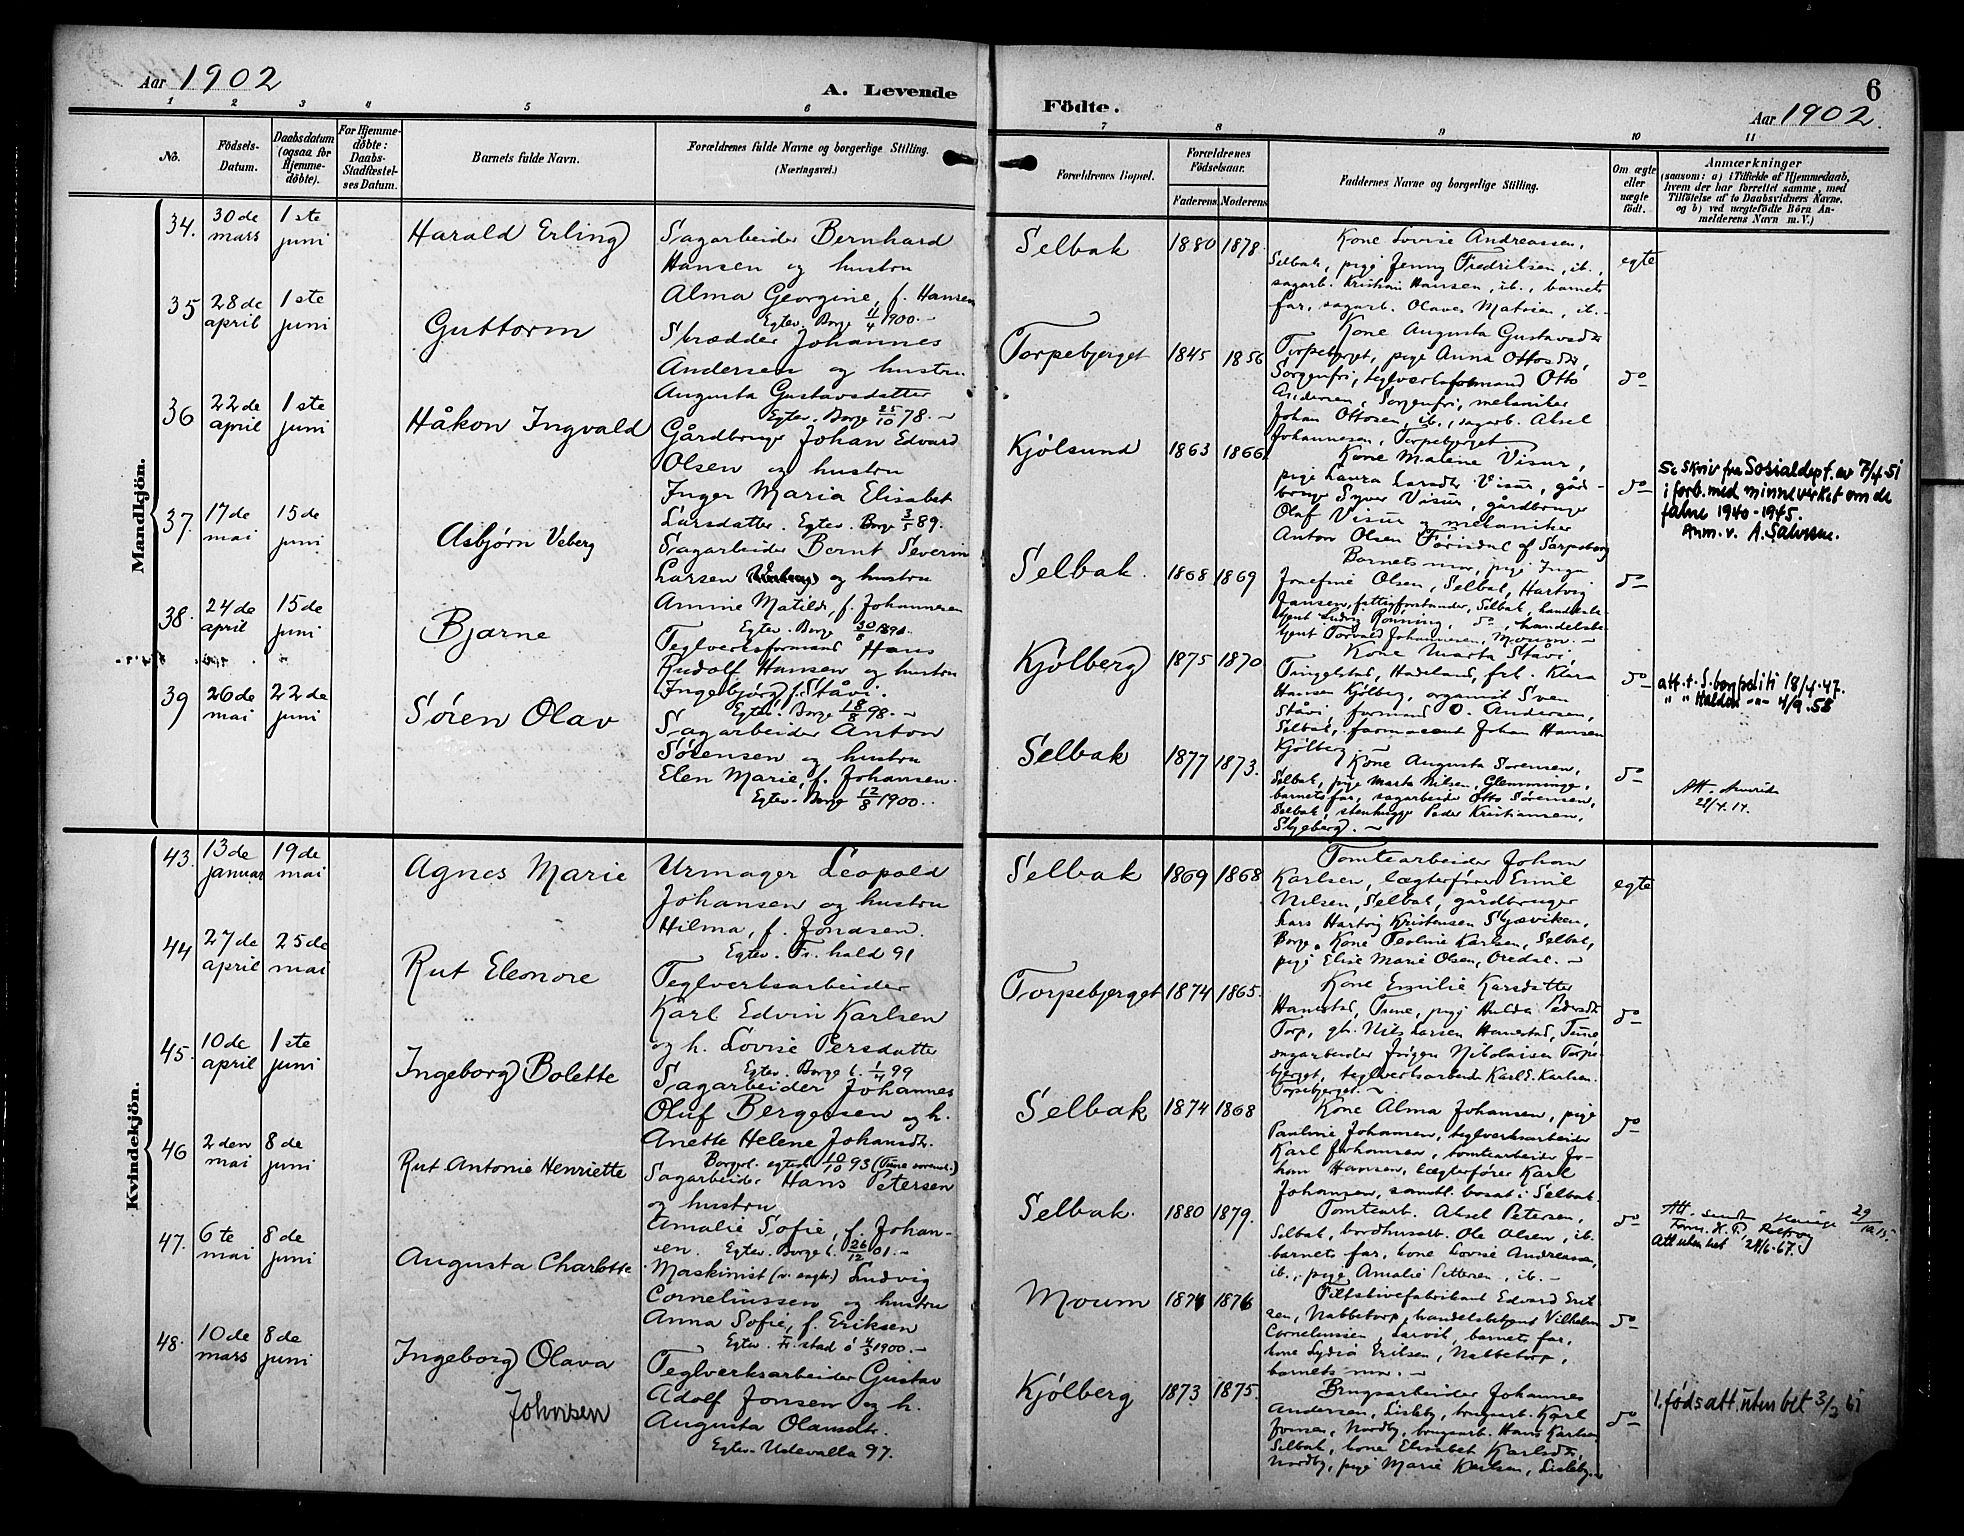 Aar 1902
A. Levende
Födte.
6
Aar 1902.
1 2 3 4 5 6 7 8 9 10 11
No.
Födsels-
Datum.
Daabsdatum
(ogsaa for
Hjemme-
döbte).
For Hjemme-
döbte:
Daabs-
Stadfæstel-
ses Datum.
Barnets fulde Navn.
Forældrenes fulde Navne og borgerlige Stilling.
(Næringsvei.)
Forældrenes Bopæl.
Forældrenes
Födselsaar.
Faderens Moderens
Faddernes Navne og borgerlige Stilling.
Om ægte
eller
uægte
födt.
Anmærkninger
(saasom: a) i Tilfælde af Hjemmedaab,
hvem der har forrettet samme, med
Tilföielse af to Daabsvidners Navne,
og b) ved uægtefödte Börn An-
melderens Navn m. V.)
Mandkjön.
34. 30de mars
1ste juni
Harald Erling
Sagarbeider Bernhard
Hansen og hustru
Alma Georgine, f. Hansen
Egtev. Borge 11/4 1900.-
Selbak 1880 1878.
Kone Lovise Andreassen,
Selbak, pige Jenny Fredriksen, ib.,
sagarb. Kristian Hansen, ib., barnets
far, sagarb. Olaves Matisen, ib.-
egte
35 28de april
1ste juni
Guttorm
Skrædder Johannes
Andersen og hustru
Augusta Gustavsdatter
Egtev. Borge 25/10 78.-
Torpebjerget 1845 1856
Kone Augusta Gustavsdtr
Torpebjerget, pige Anna Ottosdtr,
Sorgenfri, teglverksformand Otto
Andersen, Sorgenfri, mekaniker
Johan Ottosen, ib., sagarb. Aksel
Johannesen, Torpebjerget
do
36 22de april
1ste juni
Håkon Ingvald
Gårdbruger Johan Edvard
Olsen og hustru
Inger Maria Elisabet
Larsdatter. Egtev. Borge 3/5 89.
Kjölsund 1863 1866
Kone Malene Visur,
pige Laura Larsdtr Visur, gård-
bruger Syver Visur, gårdbruger
Olaf Visur og mekaniker
Anton Olsen of Sarpsborg
do
Se skriv fra Sosialdept. av 7/4 51
i forb. med minneverket om de
falne 1940-1945.
Anm. v. A. Salvesen.
37. 17de mai
15de juni
Asbjørn Veberg
Sagarbeider Bernt Severin
Larsen og hustru
Amine Matilde, f. Johannesen
Egtev. Borge 30/8 1890.
Selbak. 1868 1869
Barnets mor, pige Inga
Josefine Olsen, Selbak, Hartvig
Jansen, fattigforstander, Selbak, handels-
agent Ludvig Rönning, do, handelsbe-
tjent Torvald Johannesen, Moum. -
do
38. 24de april
15de juni
Bjarne
Teglverksformand Hans
Rudolf Hansen og hustru
Ingebjørg f. Ståvi.
Egtev. Borge 18/8 98.-
Kjölberg 1875 1870
Kone Marta Ståvi,
Tingelstad, Hadeland, frk. Klara
Hansen Kjölberg, organist Sven
Ståvi, formand O. Andersen,
Selbak, farmaceut Johan Hansen
Kjölberg.
do
att. t. S.borg politi 18/4-47.
" " Halden -"- 4/9.58
39 26de mai
22de juni
Søren Olav
Sagarbeider Anton
Sørensen og hustru
Elen Marie, f. Johansen.
Egtev. Borge 12/8 1900.
Selbak 1877 1873.
Kone Augusta Sorensen,
Selbak, pige Marta Nilsen, Glemminge,
barnets far, sagarbeider Otto Sørensen,
Selbak, stenhugger Peder Kristiansen,
Skjeberg. -
do
Att.
Kvindekjön.
43. 13de januar
19de mai
Agnes Marie
Urmager Leopold
Johansen og hustru
Hilma, f. Jonasen.
Egtev. Fr. hald 91
Selbak 1869 1868
Tomtearbeider Johan
Karlsen, lægterfører Emil
Nilsen, Selbak, gårdbruger
Lars Hartvig Kristensen Skjæviken,
Borge. Kone Teoline Karlsen, Selbak,
pige Elise Marie Olsen, Oredal. -
egte
44 27de april
25de mai
Rut Eleonore
Teglverksarbeider
Karl Edvin Karlsen
og h. Lovise Persdatter
Egtev. Borge 1/4 99
Torpebjerget 1874 1865.
Kone Emilie Karsdatter
Hanestad, Tune, pige Hulda Pedersdtr
Torp, gbr. Nils Larsen Hanestad, Tune
sagarbeider Jörgen Nikolaisen Torpe-
bjerget, teglverksarbeider Karl E. Karlsen.
Torpebjerget. -
do
45. 10de april
1ste juni
Ingeborg Bolette
Sagarbeider Johannes
Oluf Bergersen og h.
Anette Helene Johansdtr.
Borgerl. egtev. 10/10 93
Selbak 1874 1868
Kone Alma Johansen, pige
Pauline Johansen, teglverksarbeider
Karl Johansen, tomtearbeider Jo-
han Hansen, lægterfører Karl
Johansen, samtl. bosat i Selbak.
do
46 2den mai
8de juni
Rut Antonie Henriette
Sagarbeider Hans Petersen
og hustru
Amalie Sofie, f. Johan-
sen. Egtev. Borge 26/12 01.-
Selbak. 1880 1879.
Tomtearb. Aksel Petersen,
Selbak, bordhusarb. Ole Olsen, ib.
barnets far, kone Lovise Andreassen,
ib., pige Amalie Pettersen, ib. -
do
Att uten bet. 24/6-67.
47. 6te mai
8de juni
Augusta Charlotte
Maskinist Ludvig
Corneliussen og hustru
Anna Sofie, f. Eriksen
Egtev. Fr.stad 4/3 1900. -
Moum 1874 1876
Edvard Erik-
sen, Nabbetorp, handelsbetjent Vilhelm
Corneliussen, Larvik, barnets far,
kone Lydia Eriksen, Nabbetorp,
barnets mor. -
do
48. 10de mars
8de juni
Ingeborg Olava
Johnsen
Teglverksarbeider Gustav
Adolf Jonsen og h.
Augusta Olausdtr.
Egtev. Udevalla 97.
Kjölberg 1873 1875.
Brugsarbeider Johannes
Andersen, Lisleby, brugsarb. Karl
Jonsen, Nordby, brugsarb. Hans Karlsen
Selbak, kone Elisabet Karlsdtr,
Nordby, pige Marie Karlsen, Lisleby.-
do
1. födsatt. uten bet 3/3 61